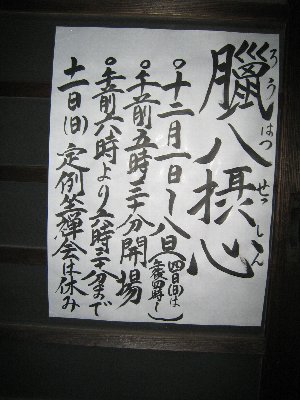 臘八摂心
ろうはつせっしん
○十二月一日〜八日(四日(日)は午後四時〜)
○午前五時二十分開場
○午前六時より六時五十分まで
十一日(日)定例坐禅会は休み